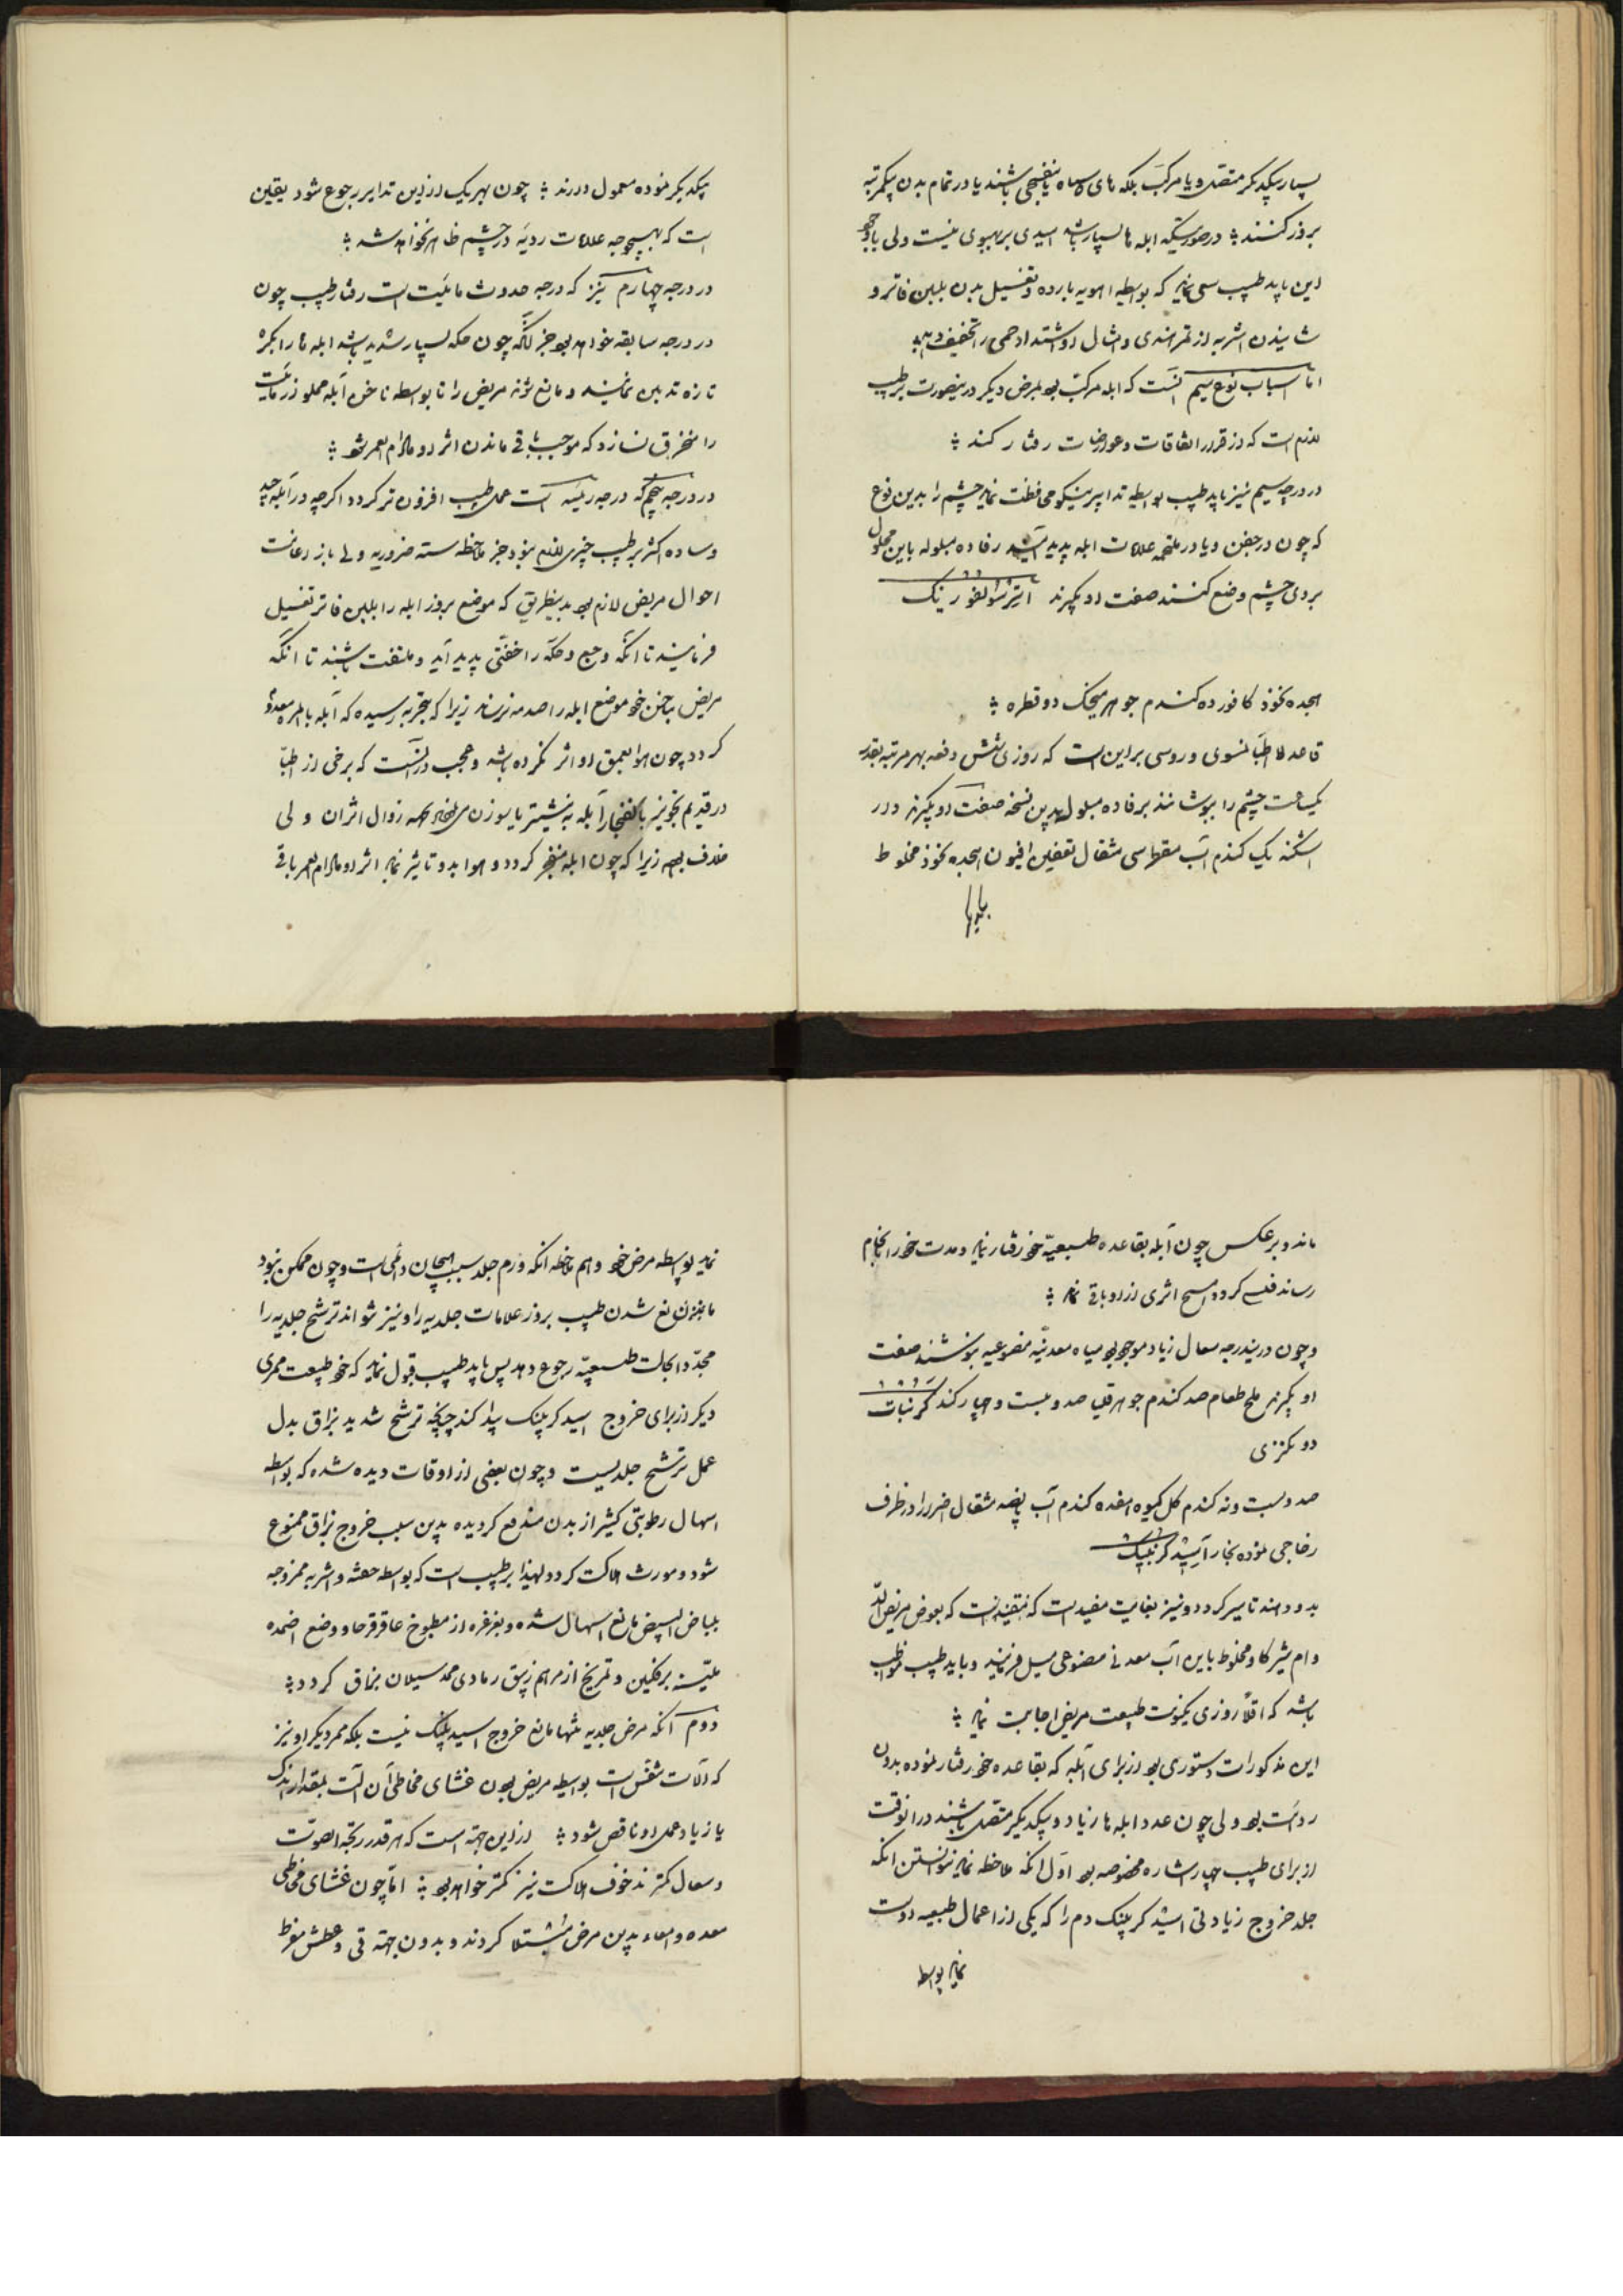 بسیار بیکدیکر متصل و یا مرکب بلکه های سیاه یا بنفسجی باشند یا در تمام بدن بیکمرتبه
بروز کنند در صورتیکه ابله ها بسیار باشد امیدی بر بهبودی نیست ولی با وجود
این باید طبیب سعی نماید که بواسطه اهویه بارده و تغسیل بدن بلبن فاتر و
نوشانیدن اشربه از تمر هندی و امثال او اشتداد حمی را تخفیف دهد
اما اسباب نوع سیم آنست که ابله مرکب بود بمرض دیکر درینصورت بر طبیب
لازم است که از قرار اتفاقات و عوارضات رفتار کند
در درجه سیم نیز باید طبیب بواسطه تدابیر نیکو محافظت نماید چشم را بدین نوع
که چون در جفن و یا در ملتحمه علامات ابله پدید آید رفاده مبلوله باین محلول
بروی چشم وضع کنند صفت او بکیرند
هجده نخود کافور ده کندم جوهر میخک دو قطره
قاعده اطبا نمسوی و روسی بر این است که روزی شش دفعه بهر مرتبه بقدر
یکساعت چشم را بپوشانند برفاده مبلول بدین نسخه صفت او بکیرند دار
اشکنه یک کندم آب مقطر سی مثقال تعفین افیون هجده نخود مخلوط
بیکدیکر نموده معمول دارند چون بهر یک از این تدابیر رجوع شود یقین
است که بهیچوجه علامات ردیه در چشم ظاهر نخواهد شد
در درجه چهارم نیز که درجه حدوث مائیت است رفتار طبیب چون
در درجه سابقه خواهد بود جز آنکه چون حکه بسیار شدید باشد ابله ها را بکره
تازه تدهین نمایند و مانع شوند مریض را تا بواسطه ناخن آبله مملو از مائیت
را منخرق نسازد که موجب باقی ماندن اثر او مادام العمر شود
در درجه پنجم که درجه ریمیه است عمل طبیب افزون تر کردد اکرچه در آبله جید
و ساده اکثر بر طبیب چیزی لازم نبود جز ملاحظه سته ضروریه ولی باز رعایت
احوال مریض لازم بود بدینطریق که موضع بروز ابله را بلبن فاتر تغسیل
فرمایند تا آنکه وجع و حکه را خفتی پدید آید و ملتفت باشند تا آنکه
مریض بناخن خود موضع ابله را صدمه نرساند زیرا که بتجربه رسیده که آبله بالمره معدوم
کردد چون هوا بعمق او اثر نکرده باشد و عجب در آنست که برخی از اطبا
در قدیم تجویز بانفجار آبله به نیشتر یا سوزن می نمودند بجهة زوال اثر آن ولی
خلاف بود زیرا که چون ابله منفجر کردد و هوا بدو تاثیر نماید اثر او مادام العمر باقی
ماند و برعکس چون آبله بقاعده طبیعیه خود رفتار نماید و مدت خود را بانجام
رساند فلس کردد هیچ اثری از او باقی نماند
و چون درین درجه سعال زیاد موجود بود میاه معدنیه مصنوعیه بنوشند صفت
او بکیرند ملح طعام صد کندم جوهر قلیا صد و بیست و چهار کندم
صد و بیست و نه کندم کل کیوه هفده کندم آب پانصد مثقال اجزا را در ظرف
زجاجی نموده بخار آسید کربنیک
بدو دهند تا سیر کردد و نیز بغایت مفید است که بعوض مریض الد
وام شیر کاو مخلوط باین آب معدنی مصنوعی میل فرمایند و باید طبیب مواظب
باشد که اقلا روزی یکنوبت طبیعت مریض اجابت نماید
این مذکورات دستوری بود از برای آبله که بقاعده خود رفتار نموده بدون
ردائت بود ولی چون عدد ابله ها زیاد و بیکدیکر متصل باشند در آنوقت
از برای طبیب چهار اشاره مخصوصه بود اول آنکه ملاحظه نماید نتوانستن آنکه
جلد خروج زیادتی اسید کربنیک دم را که یکی از اعمال طبیعیه اوست
نماید بواسطه
نماید بواسطه مرض خود و هم ملاحظه آنکه ورم جلد سبب هیجان دائمی است و چون ممکن نبود
مانع شدن طبیب بروز علامات جلدیه را و نیز نتواند ترشح جلدیه را
مجددا بحالت طبیعیه رجوع دهد پس باید طبیب قبول نماید که خود طبیعت ممری
دیکر از برای خروج اسید کربنیک پیدا کند چنانچه ترشح شدید بزاق بدل
عمل ترشح جلدیست و چون بعضی از اوقات دیده شده که بواسطه
اسهال رطوبتی کثیر از بدن مندفع کردیده بدین سبب خروج بزاق ممنوع
شود و مورث هلاکت کردد لهذا بر طبیب است که بواسطه حقنه و اشربه ممزوجه
ببیاض البیض مانع اسهال شده و بغرغره از مطبوخ عاقرقرحا و وضع اضمده
ملینه بر فکین و تمریخ از مرهم زیبق رمادی ممد سیلان بزاق کردد
دوم آنکه مرض جلدیه تنها مانع خروج اسید کربنیک نیست بلکه ممر دیکر او نیز
که آلات تنفس است بواسطه مریض بودن غشای مخاطی آن آلت بمقدار اندک
یا زیاد عمل او ناقص شود از این جهة است که هر قدر بحة الصوت
و سعال کمترند خوف هلاکت نیز کمتر خواهد بود اما چون غشای مخاطی
معده و امعاء بدین مرض مبتلا کردند و بدون جهة قی و عطش مفرط